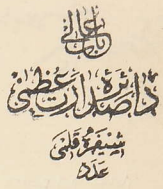 باب عالی
دائرۀ صدارت عظمی
شیفره قلمی
عدد